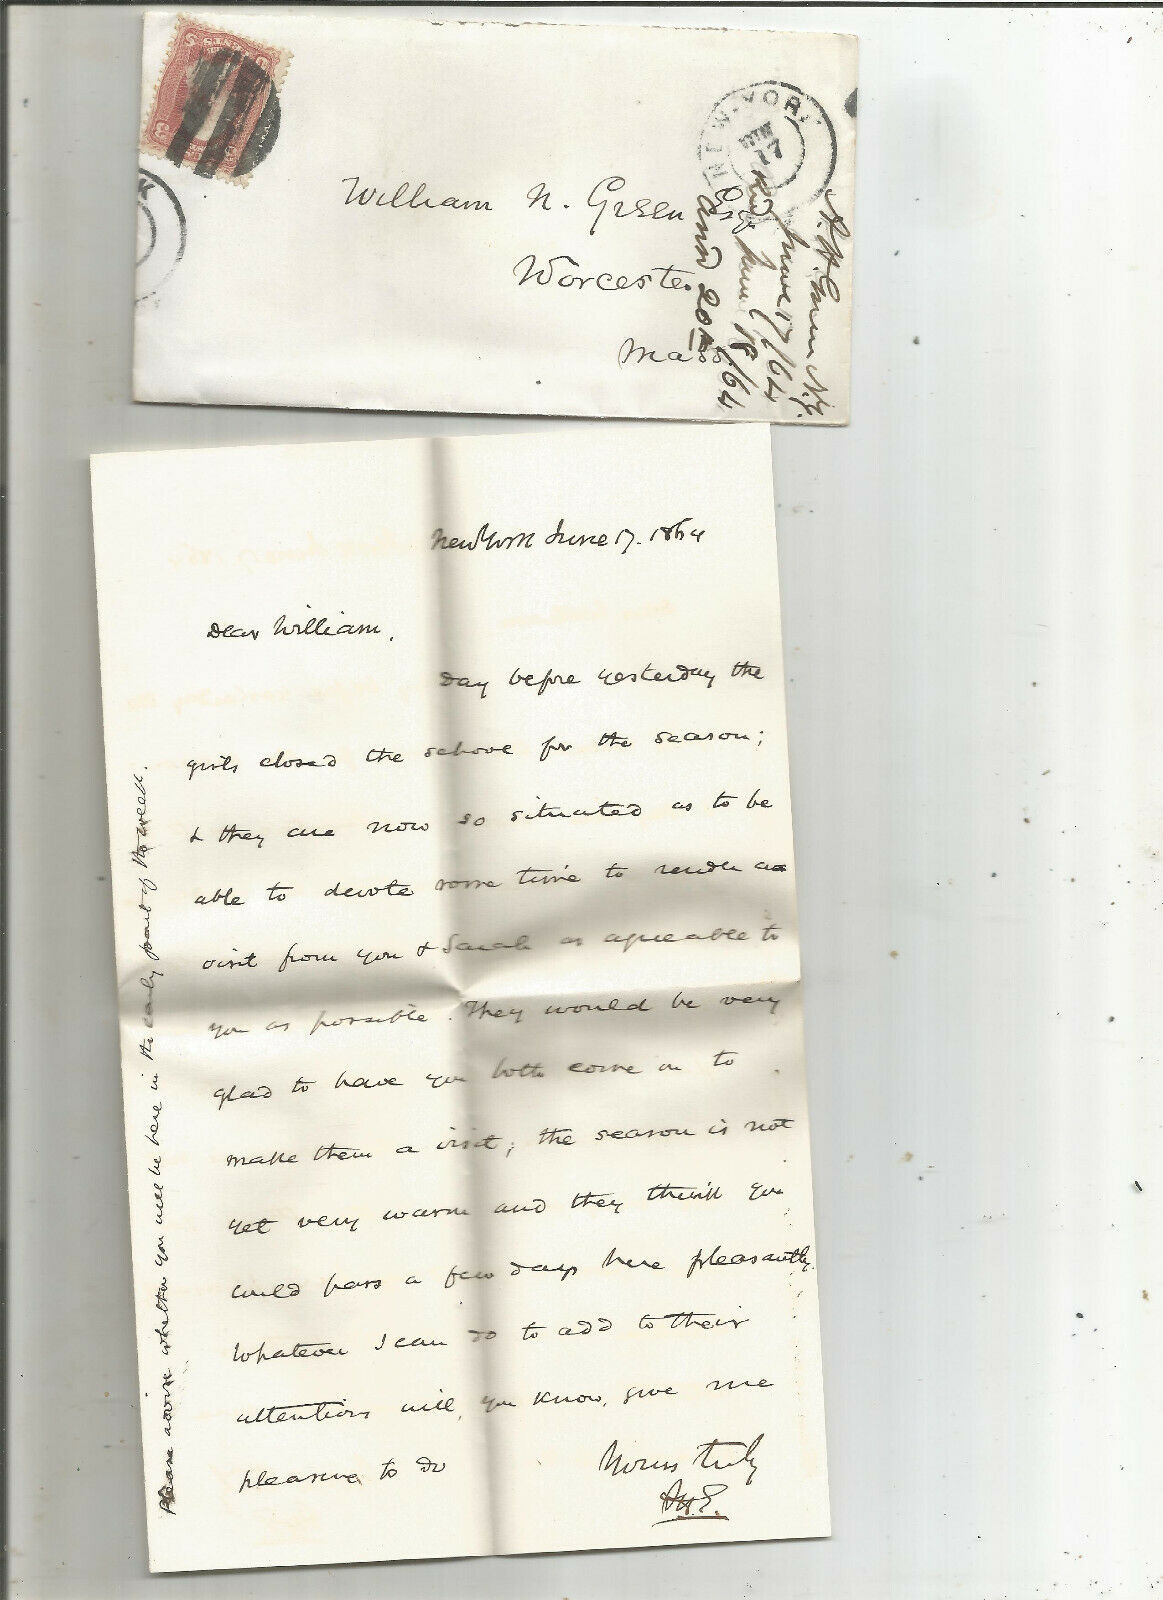 NEW-YORK
JUN
17
K
William N. Green Esq
Worcester
Mass.
A. H. Green N.Y.
June 17/64
Recd June 18
ansd 20th/64
New York June 17. 1864
Dear William,
Day before yesterday the
girls closed the school for the season;
& they are now so situated as to be
able to devote some time to render a
visit from you & Sarah as agreeable to
you as possible. They would be very
glad to have you both come on to
make them a visit; the season is not
yet very warm and they think you
could pass a few days here pleasantly.
Whatever I can do to add to their
attentions will, you know, give me
pleasure to do
Yours truly
AHG.
Please advise whether you will be here in the early part of the week.